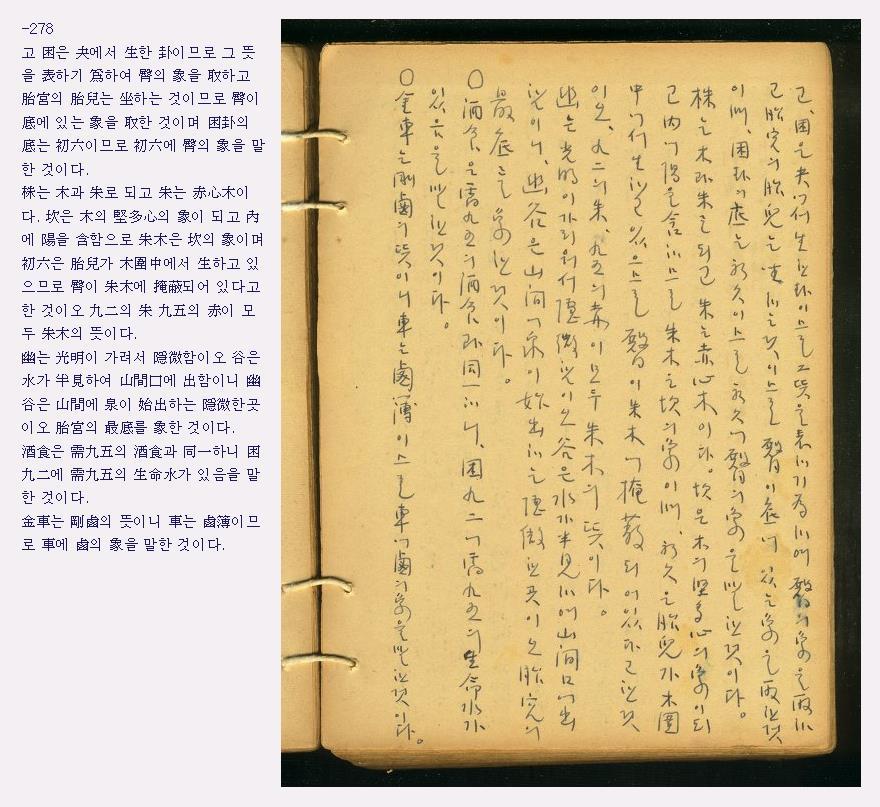 -278
고 困은 夬에서 生한 卦이므로 그 뜻
을 表하기 爲하여 臀의 象을 取하고
胎宮의 胎兒는 坐하는 것이므로 臀이
底에 있는 象을 取한 것이며 困卦의
底는 初六이므로 初六에 臀의 象을 말
한 것이다.
株는 木과 朱로 되고 朱는 赤心木이
다. 坎은 木의 堅多心의 象이 되고 內
에 陽을 含함으로 朱木은 坎의 象이며
初六은 胎兒가 木圍中에서 生하고 있
으므로 臀이 朱木에 掩蔽되어 있다고
한 것이오 九二의 朱 九五의 赤이 모
두 朱木의 뜻이다.
幽는 光明이 가려서 隱微함이오 谷은
水가 半見하여 山間口에 出함이니 幽
谷은 山間에 泉이 始出하는 隱微한곳
이오 胎宮의 最底를 象한 것이다.
酒食은 需九五의 酒食과 同一하니 困
九二에 需九五의 生命水가 있음을 말
한 것이다.
金車는 剛鹵의 뜻이니 車는 鹵簿이므
로 車에 鹵의 象을 말한 것이다.
고, 困은 夬에서 生한 卦이므로 그 뜻을 表하기 爲하여 臀의 象을 取하
고 胎宮의 胎兒는 坐하는 것이므로 臀이 底에 있는 象을 取한 것
이며, 困卦의 底는 初六이므로 初六에 臀의 象을 말한 것이다。
株는 木과 朱로 되고 朱는 赤心木이다。坎은 木의 堅多心의 象이 되
고 內에 陽을 含함으로 朱木은 坎의 象이며, 初六은 胎兒가 木圍
中에서 生하고 있으므로 臀이 朱木에 掩蔽되어 있다고 한 것
이오, 九二의 朱, 九五의 赤이 모두 朱木의 뜻이다。
幽는 光明이 가리워서 隱微함이오 谷은 水가 半見하여 山間口에 出
함이니, 幽谷은 山間에 泉이 始出하는 隱微한 곳이오 胎宮의
最底를 象한 것이다。
○酒食은 需九五의 酒食과 同一하니, 困九二에 需九五의 生命水가
있음을 말한 것이다。
○金車는 剛鹵의 뜻이니 車는 鹵簿이므로 車에 鹵의 象을 말한 것이다。